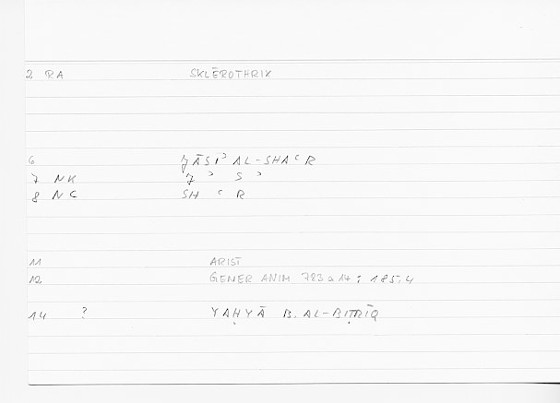 2 RA SKLĒROTHRIX
6 ǦĀSIʾ AL-SHAʿR
7 NK Ǧ ʾ S ʾ
8 NC SH ʿ R
11 ARIST
12 GENER ANIM 783 a 14 ; 185,4
14 ? YAḤYĀ B. AL-BIṬRĪQ